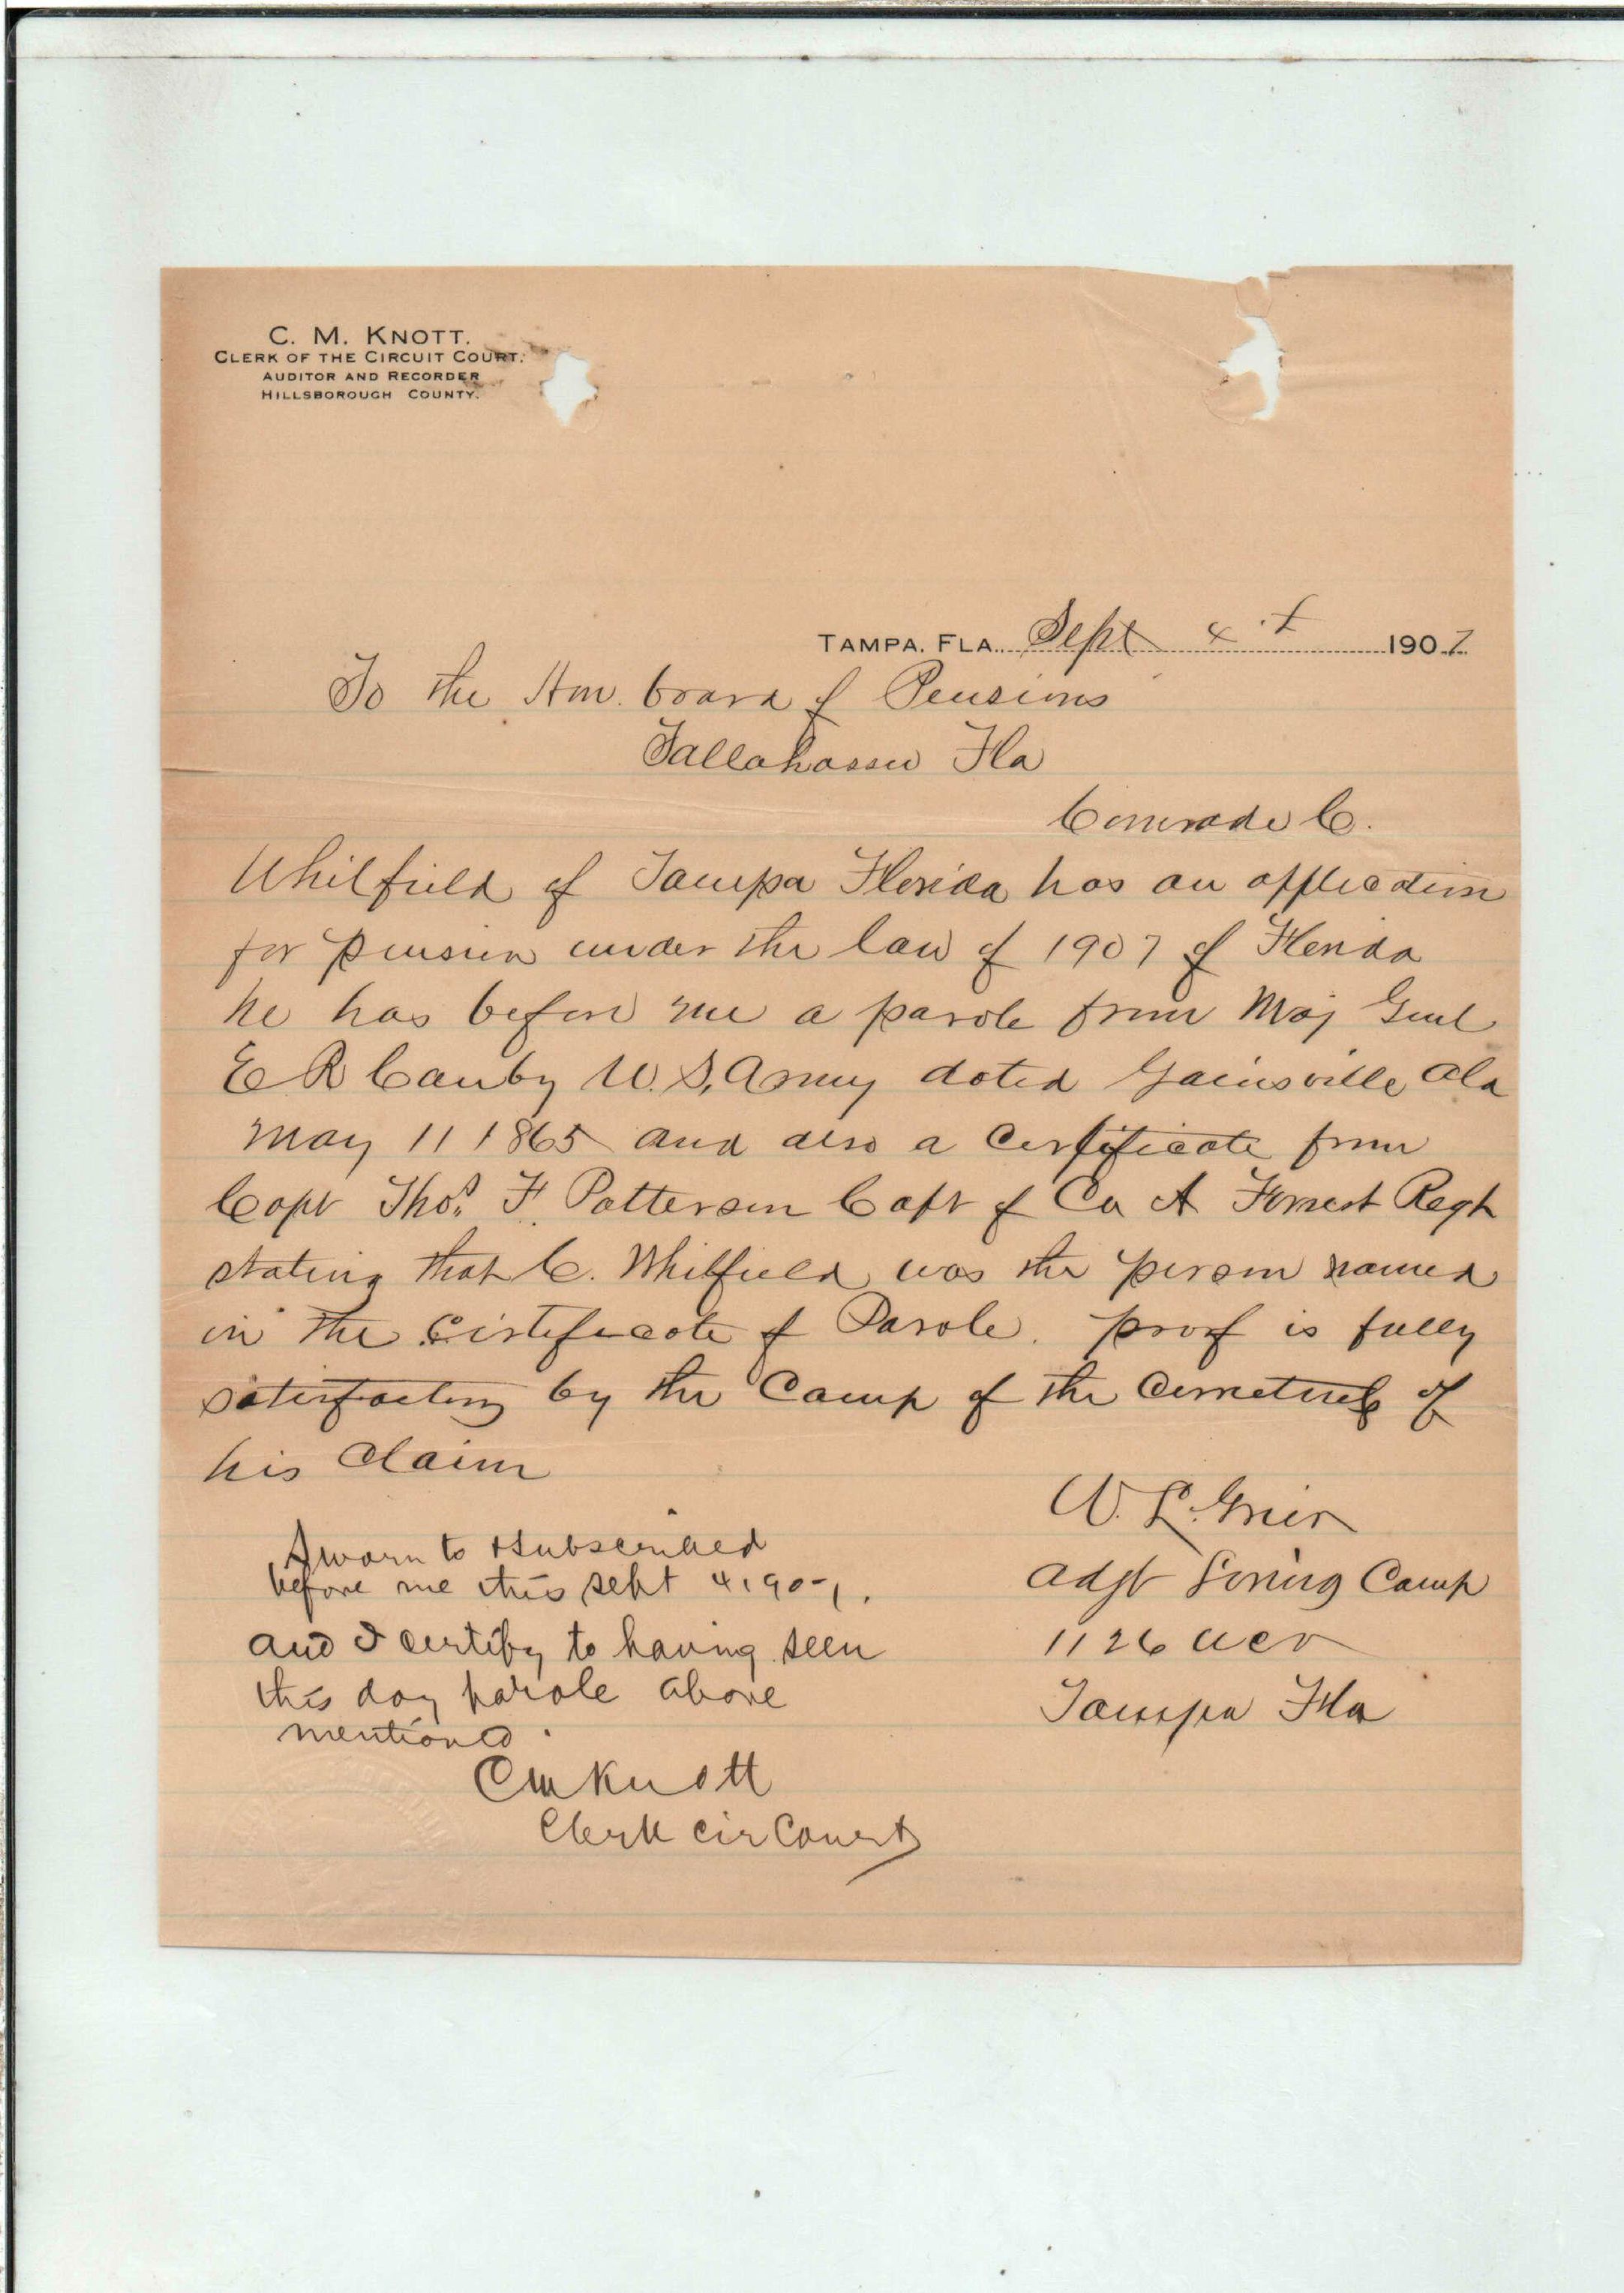 C. M. KNOTT.
CLERK OF THE CIRCUIT COURT.
AUDITOR AND RECORDER
HILLSBOROUGH COUNTY.
TAMPA. FLA. Sept 4th 1907
To the Hon. board of Pensions
Tallahassee Fla
Comrade C.
Whitfield of Tampa Florida has an application
for pension under the law of 1907 of Florida
he has before me a parole from Maj Genl
E R Canby U. S. Army dated Gainsville Ala
May 11 1865 and also a Certificate from
Capt Thos. F. Patterson Capt of Co A Forrest Regt
stating that C. Whitfield was the person named
in the Certificate of Parole. proof is fully
satisfactory by the Camp of the of
his Claim
W. L. Grier
Adjt Loring Camp
1126 UCV
Tampa Fla
Sworn to & subscribed
before me this Sept 4 1907.
and I certify to having seen
this day parole above
mentioned.
CM Knott
Clerk Cir Court